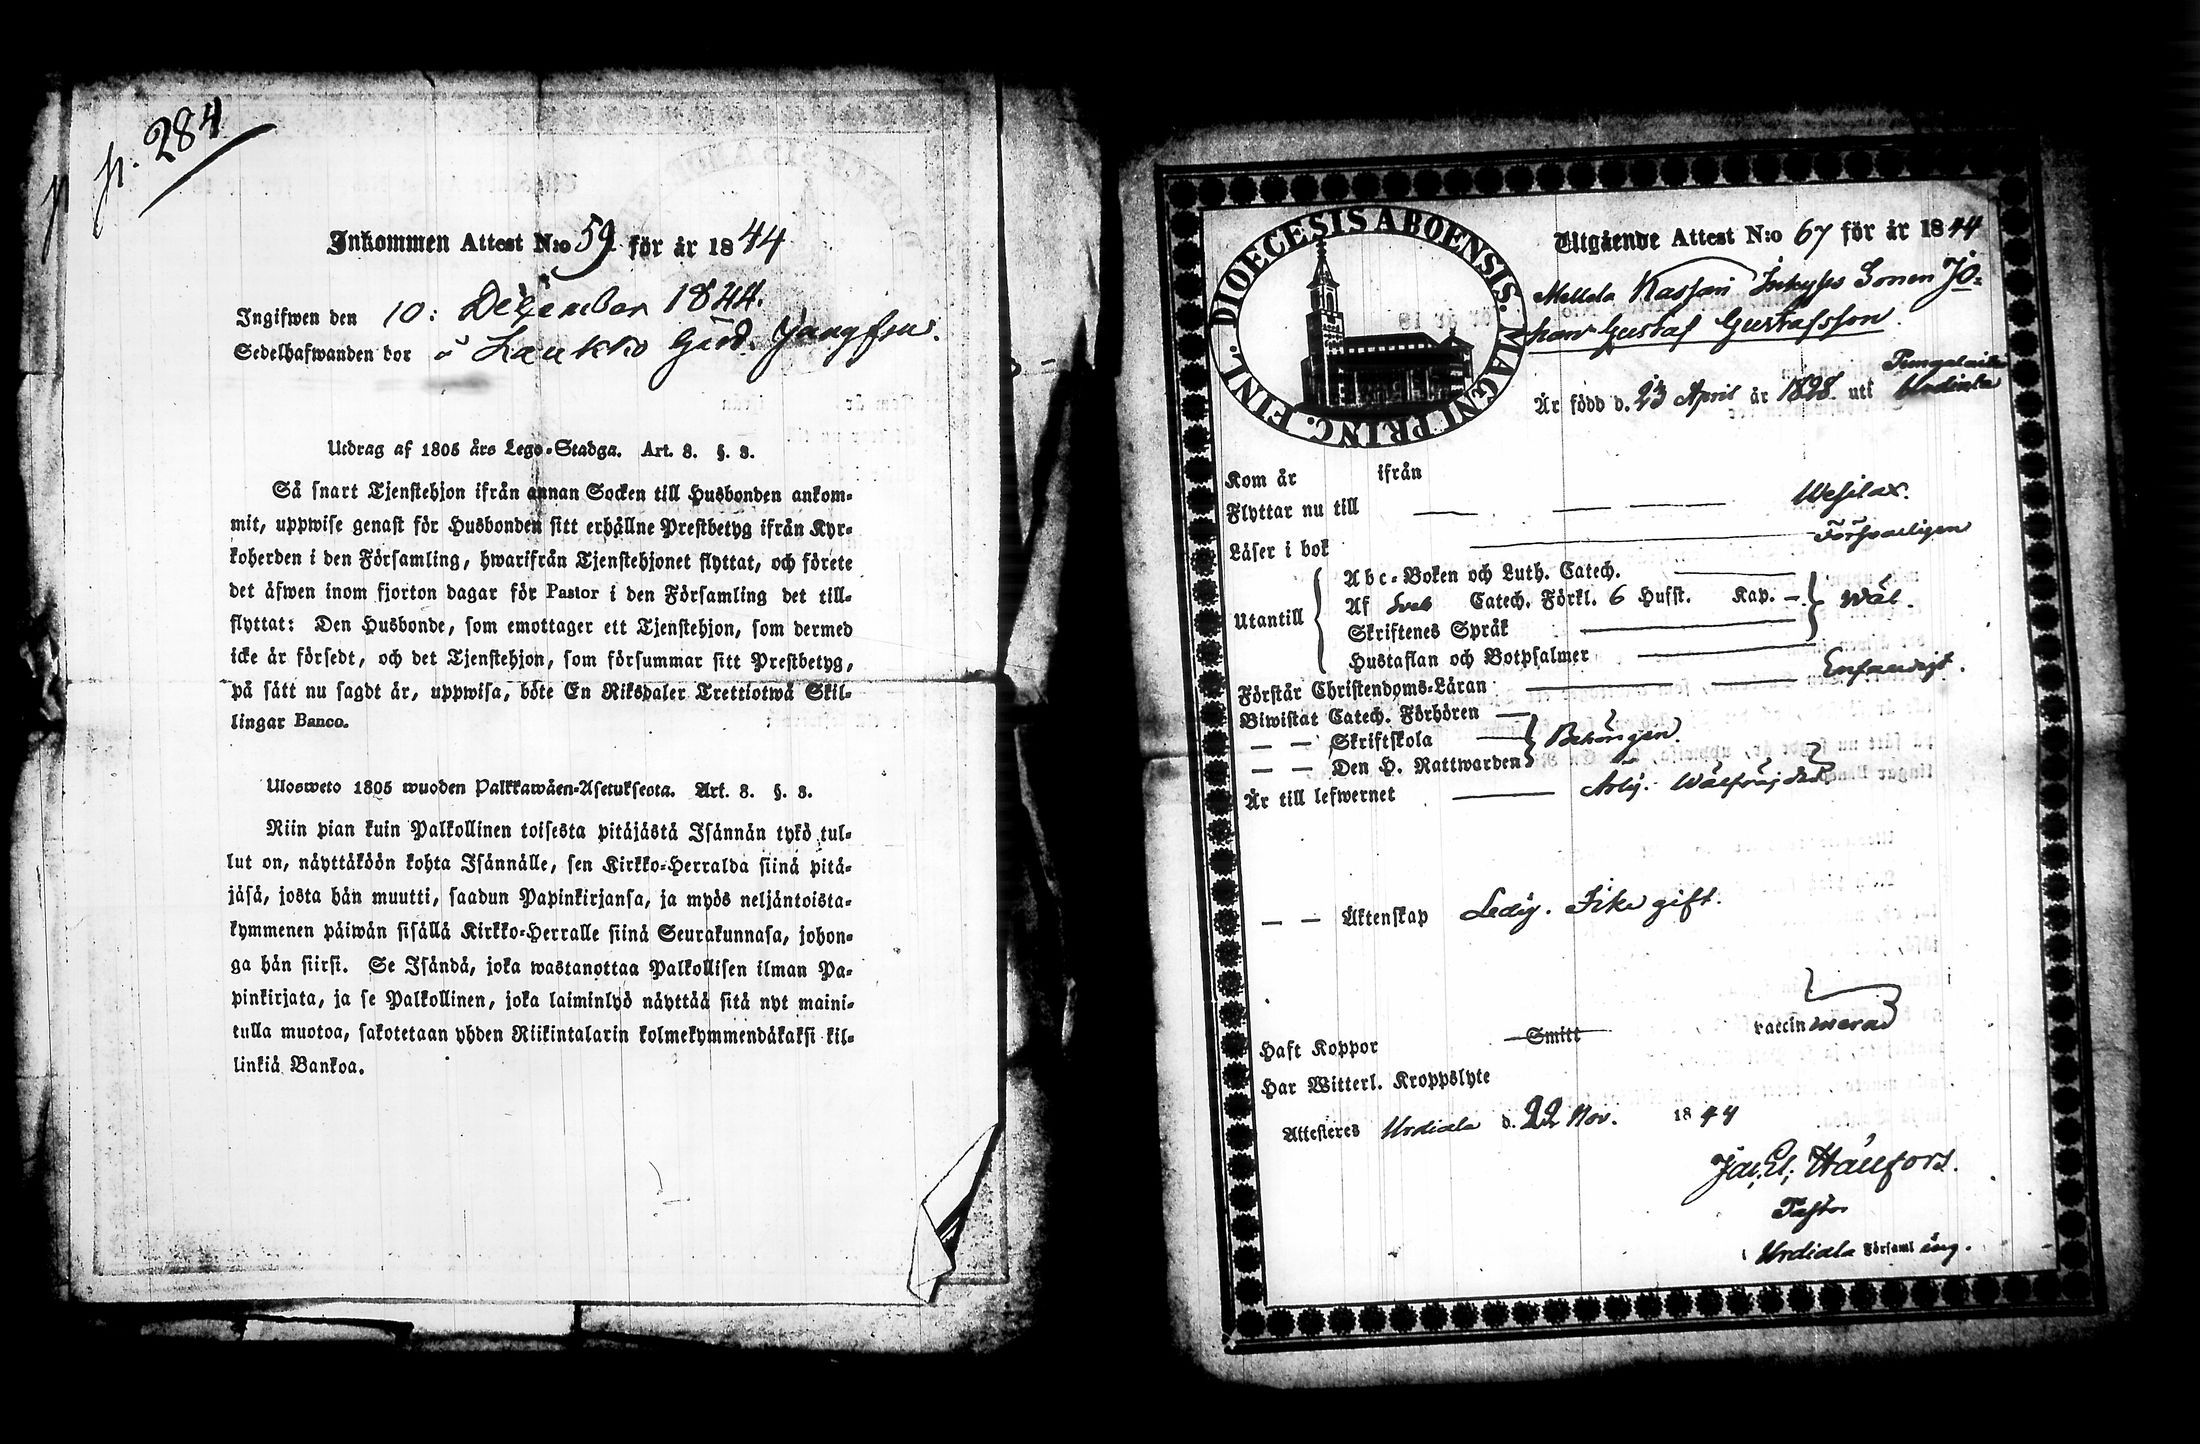 p. 284
Inkommen Attest N:o 59 för år 1844
Ingifwen den 10: December 1844.
Sedelhafwanden bor å Laukko Gård. Jungfru.
Utdrag af 1805 års Lego-Stadga. Art. 8. §. 3.
Så snart Tjenstehjon ifrån annan Socken till Husbonden ankom-
mit, uppwise genast för Husbonden sitt erhållne Prestbetyg ifrån Kyr-
koherden i den Församling, hwarifrån Tjenstehjonet flyttat, och förete
det äfwen inom fjorton dagar för Pastor i den Församling det till-
flyttat: Den Husbonde, som emottager ett Tjenstehjon, som dermed
icke är försedt, och det Tjenstehjon, som försummar sitt Prestbetyg,
på sätt nu sagdt är, uppwisa, böte En Riksdaler Trettiotwå Skil-
lingar Banco.
Ulosweto 1805 wuoden Palkkawäen-Asetuksesta. Art. 8. §. 3.
Niin pian kuin Palkollinen toisesta pitäjästä Isännän tykö tul-
lut on, näyttäköön kohta Isännälle, sen Kirkko-Herralda siinä pitä-
jäsä, josta hän muutti, saadun Papinkirjansa, ja myös neljäntoista-
kymmenen päiwän sisällä Kirkko-Herralle siinä Seurakunnasa, johon-
ga hän siirsi. Se Isändä, joka wastanottaa Palkollisen ilman Pa-
pinkirjata, ja se Palkollinen, joka laiminlyö näyttää sitä nyt maini-
tulla muotoa, sakotetaan yhden Riikintalarin kolmekymmendäkaksi kil-
linkiä Bankoa.
DIOECESIS ABOENSIS. MAGNI PRINC. FINL.
Utgående Attest N:o 67 för år 1844
Mellola Kassari Sonen Jo-
han Gustaf Gustafsson.
Är född d. 23 April år 1828. uti Urdiala
Kom år ifrån
Flyttar nu till Wesilax.
Läser i bok Försvarligen
Utantill
Abc-Boken och Luth. Catech.
Af Sveb Catech. Förkl. 6 Husst. Kap. Wäl.
Skriftenes Språk
Hustaflan och Botpsalmer
Förstår Christendoms-Läran Enfaldigt.
Biwistat Catech. Förhören
— — Skriftskola Behörigen.
— — Den H. Nattwarden
Är till lefwernet Ärlig. Wälfräjdad.
— — Äktenskap Ledig. Icke gift.
Haft Koppor Smitt vaccinnerad
Har Witterl. Kroppslyte
Attesteres Urdiala d. 22 Nov. 1844
Jac. El. Hällfors.
Pastor
i Urdiala Församling.